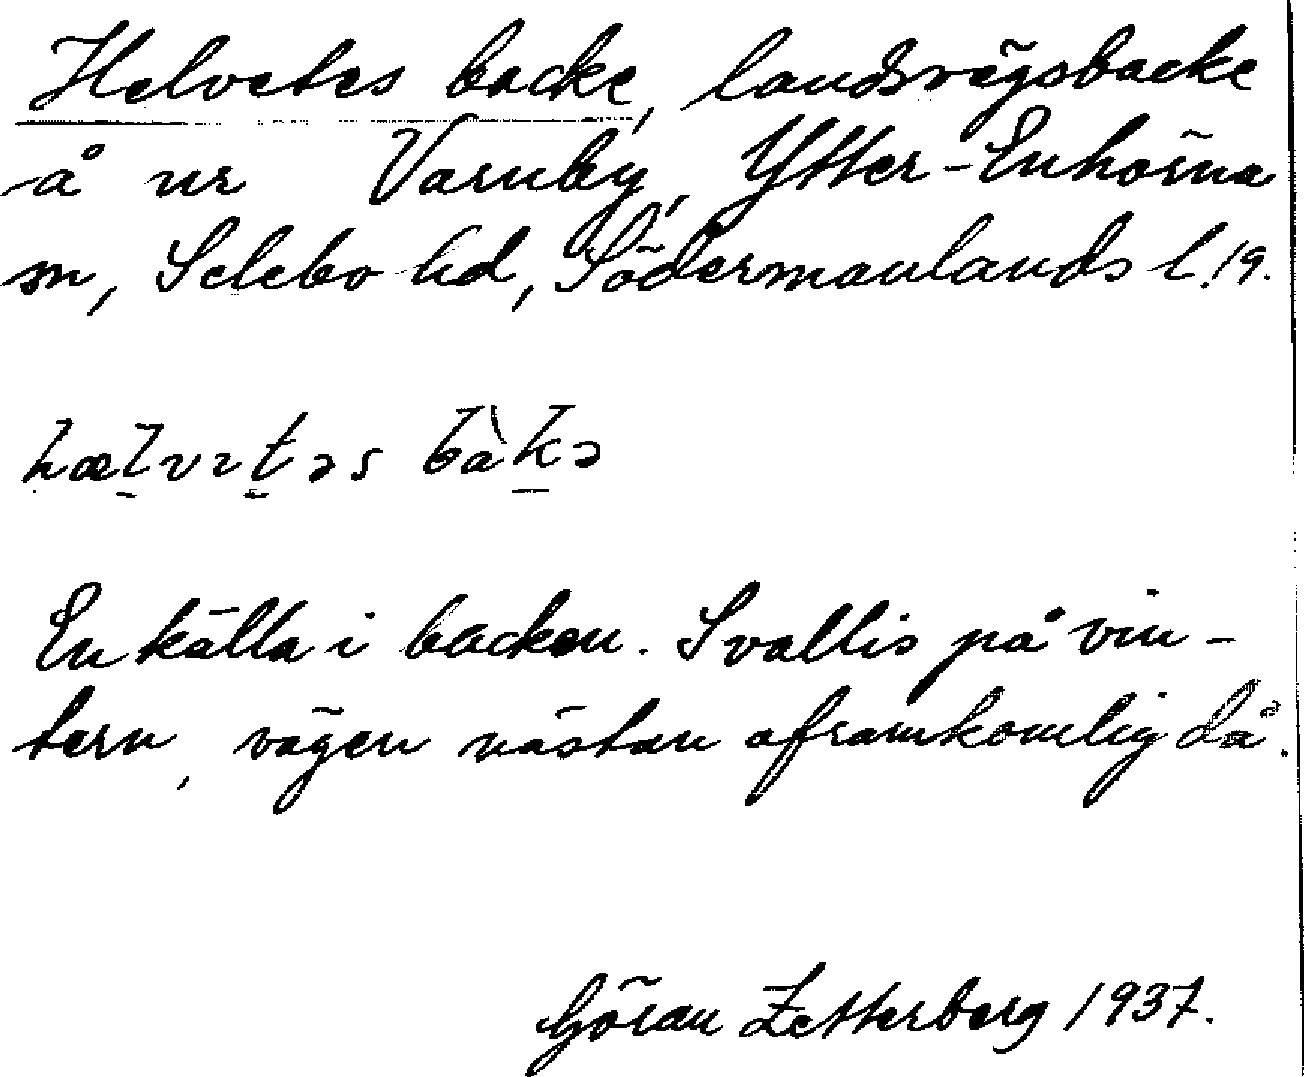 Helvetes backe, landsvägsbacke
å nr Varnby, Ytter-Enhörna
sn, Selebo hd, Södermanlands l. 19.
hælvetəs bàkə
En källa i backen. Svallis på vin-
tern, vägen nästan oframkomlig då.
Göran Zetterberg 1937.